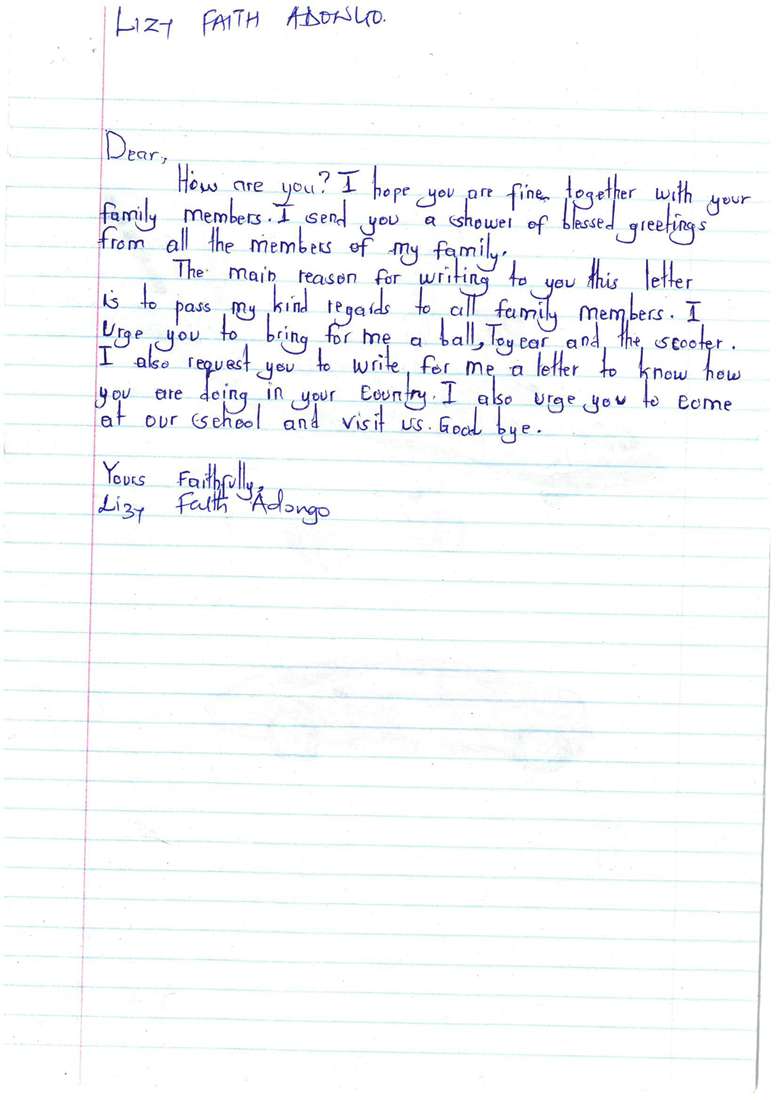 LIZY FAITH ADONGO.
Dear,
How are you? I hope you are fine together with your
family members. I send you a shower of blessed greetings
from all the members of my family.
The main reason for writing to you this letter
is to pass my kind regards to all family members. I
urge you to bring for me a ball, Toycar and the scooter.
I also request you to write for me a letter to know how
you are doing in your Country. I also urge you to come
at our school and visit us. Good bye.
Yours Faithfully,
Lizy Faith Adongo